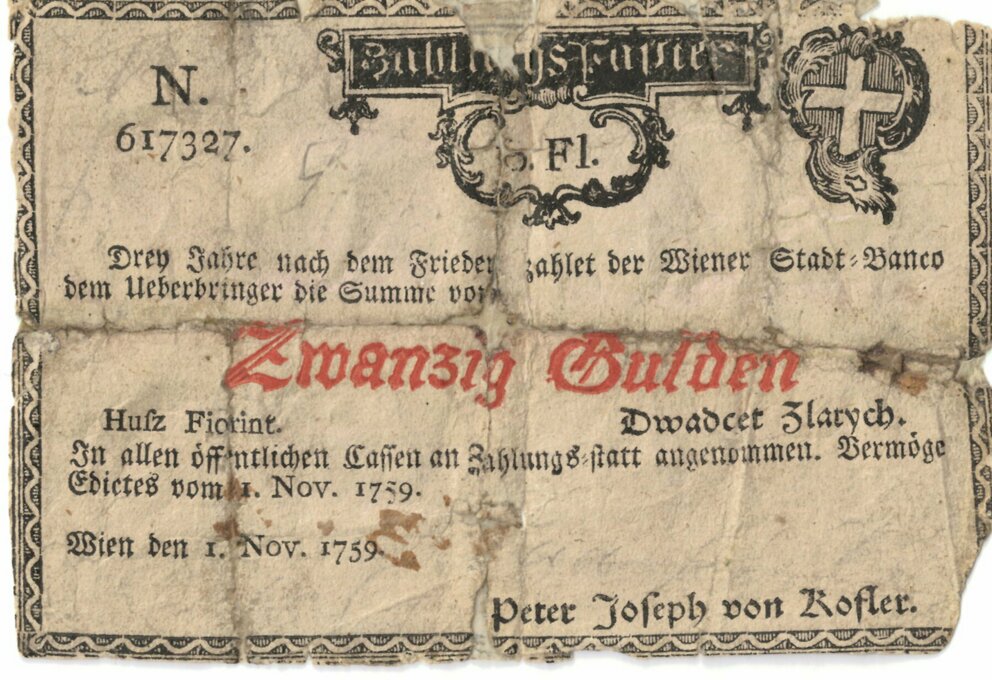 Zahlungs-Papier
N.
617327.
Fl.
Drey Jahre nach dem Frieden zahlet der Wiener Stadt-Banco
dem Ueberbringer die Summe von
Zwanzig Gulden
Husz Fiorint.
Dwadcet Zlatych.
In allen öffentlichen Cassen an Zahlungs-statt angenommen. Vermöge
Edictes vom 1. Nov. 1759.
Wien den 1. Nov. 1759.
Peter Joseph von Kofler.